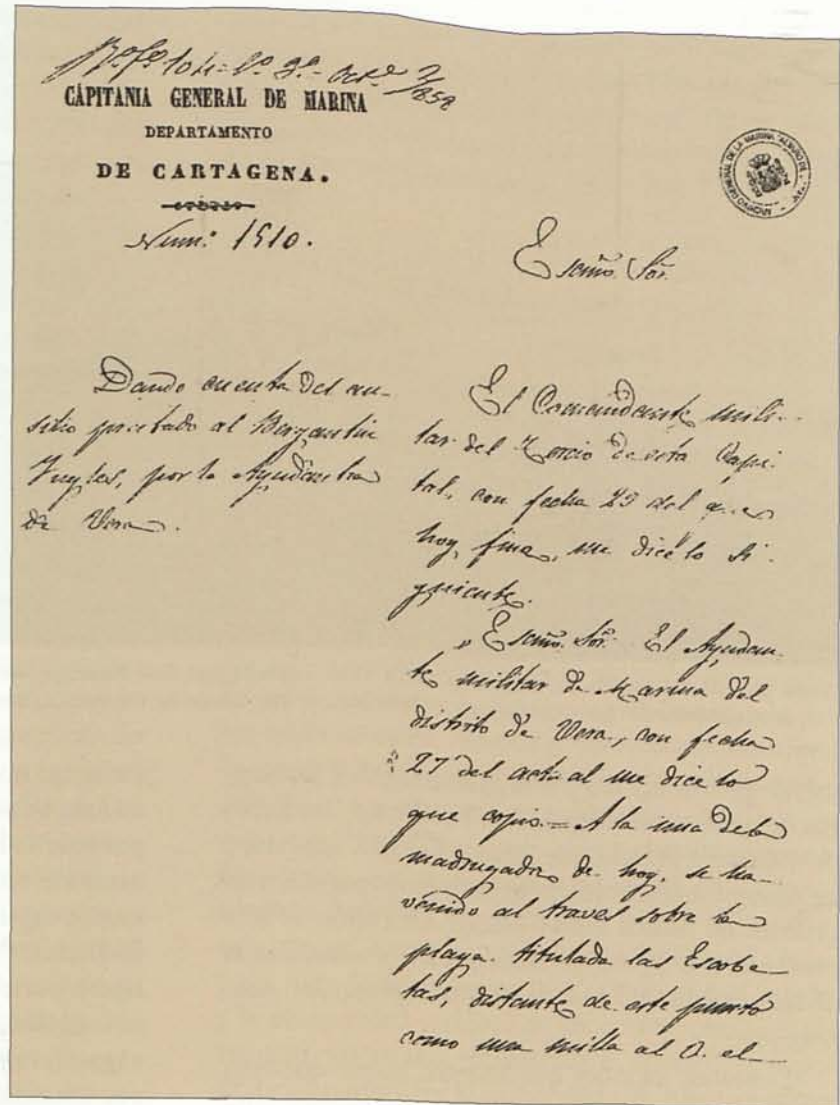 Octe 2/852
CAPITANIA GENERAL DE MARINA
DEPARTAMENTO
DE CARTAGENA.
Num: 1510.
ARCHIVO GENERAL DE LA MARINA "ALVARO DE
Escmo. Sor.
Dando cuenta del au-
silio prestado al Bergantin
Yngles, por la Ayudantia
de Vera.
El Comandante mili-
tar del Tercio de esta Capi-
tal, con fecha 29 del q. es
hoy fina, me dice lo si-
guiente.
"Escmo. Sor. El Ayudan-
te militar de Marina del
distrito de Vera, con fecha
27 del actual me dice lo
que copio.=A la una de la
madrugada de hoy, se ha
venido al traves sobre la
playa titulada las Escobe-
tas, distante de este puerto
como una milla al O. el